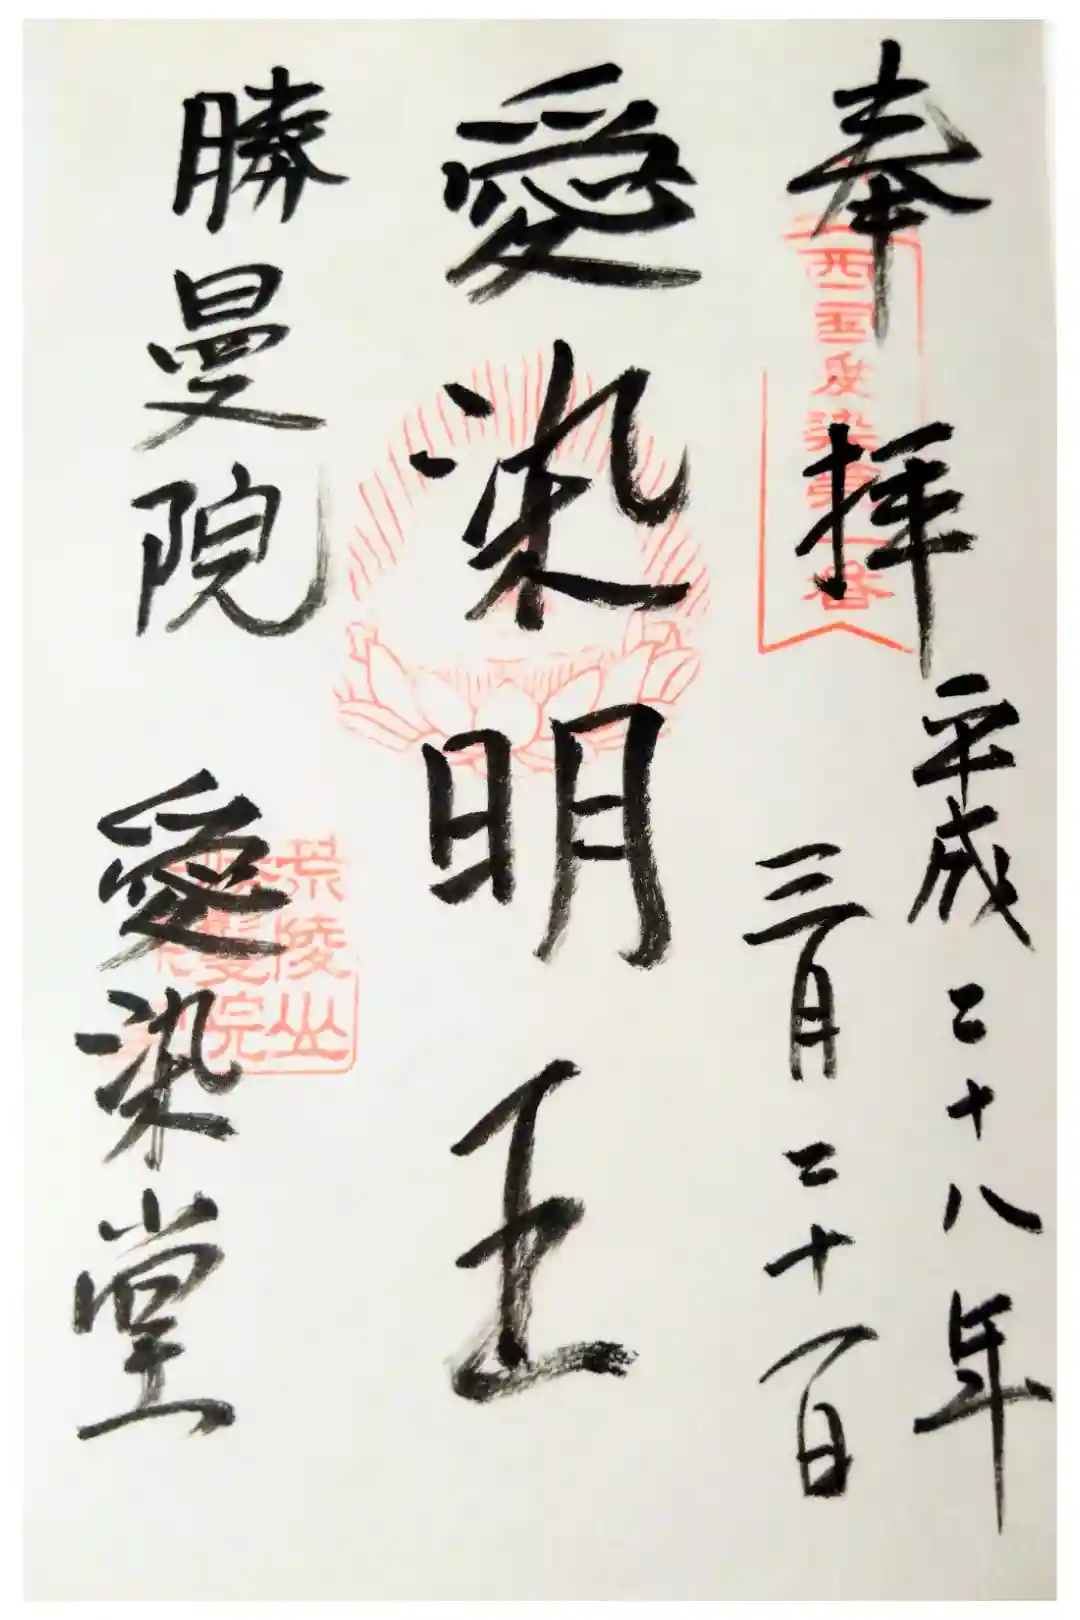 奉拝
西国愛染第一番
平成二十八年
三月二十一日
愛染明王
勝曼院 愛染堂
荒陵山
勝鬘院